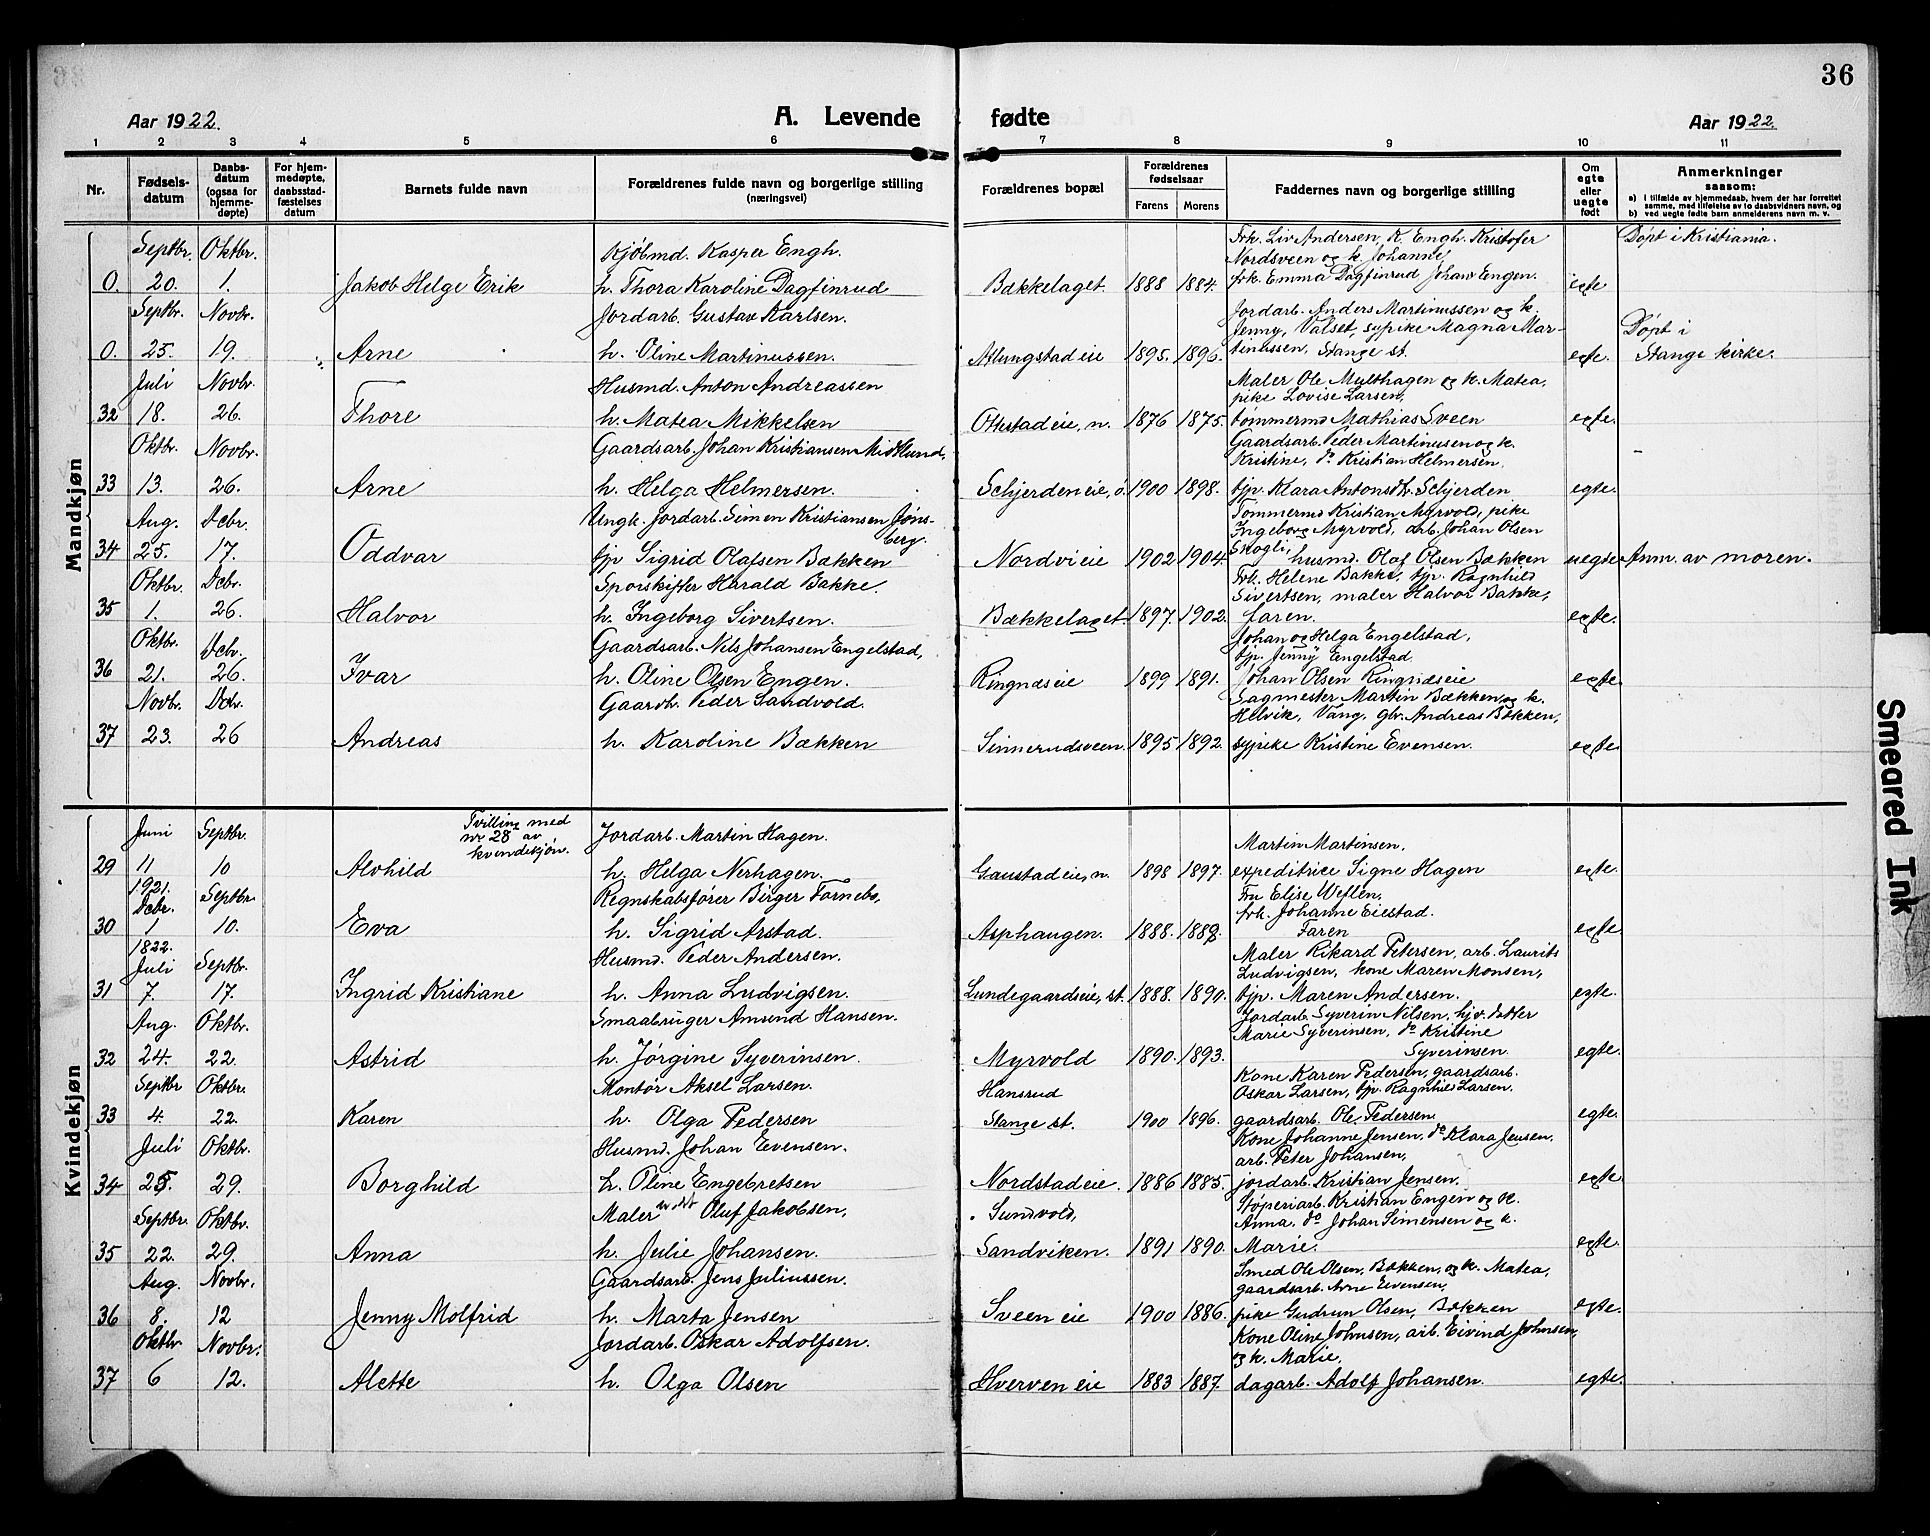 36
Aar 1922.
A. Levende fødte
Aar 1922.
1 2 3 4 5 6 7 8 9 10 11
Nr.
Fødsels-
datum
Daabs-
datum
(ogsaa for
hjemme-
døpte)
For hjem-
medøpte,
daabsstad-
fæstelses
datum
Barnets fulde navn
Forældrenes fulde navn og borgerlige stilling
(næringsvei)
Forældrenes bopæl
Forældrenes
fødselsaar
Farens
Morens
Faddernes navn og borgerlige stilling
Om
egte
eller
uegte
født
Anmerkninger
saasom:
a) i tilfælde av hjemmedaab, hvem der har forrettet
samme, med tilføielse av to daabsvidners navn, og
b) ved uegte fødte barn anmelderens navn m. v.
Mandkjøn
Septbr. Oktbr. Kjøbmd. Kasper Engh. Frk. Liv Andersen, K. Engh. Kristofer Døpt i Kristiania.
Nordsveen og k. Johanne,
0. 20. 1. Jakob Helge Erik h. Thora Karoline Dagfinrud Bækkelaget. 1888 1884. frk. Emma Dagfinrud Johan Engen. egte
Septbr. Novbr. Jordarb. Gustav Karlsen. Jordarb. Anders Martinussen og k.
Jenny, Valset, sypike Magna Mar- Døpt i
0. 25. 19. Arne h. Oline Martinussen. Atlungstad eie 1895. 1896. tinussen, Stange st. egte. Stange kirke.
Juli Novbr. Husmd. Anton Andreassen Maler Ole Mylthagen og k. Matea,
pike Lovise Larsen,
32 18. 26. Thore h. Matea Mikkelsen Ottestad eie, n. 1876 1875. tømmermd Mathias Sveen egte.
Oktbr. Novbr. Gaardsarb. Johan Kristiansen Midtlund, Gaardsarb. Peder Martinusen og k.
Kristine, do Kristian Helmersen.
33 13. 26. Arne h. Helga Helmersen. Schjerden eie, ø. 1900 1898. tjp. Klara Antonsdtr. Schjerden egte.
Aug. Dcbr. Ungk. Jordarb. Simen Kristiansen Jøns- Tømmermd Kristian Myrvold, pike
berg. Ingeborg Myrvold, arb. Johan Olsen
34 25. 17. Oddvar tjp Sigrid Olafsen Bækken Nordvi eie 1902 1904. Skogli, husmd. Olaf Olsen Bækken uegte Anm. av moren.
Oktbr. Dcbr. Sporskifter Harald Bakke. Frk. Helene Bakke, tjp. Ragnhild
Sivertsen, maler Halvor Bakke,
35 1. 26. Halvor h. Ingeborg Sivertsen. Bækkelaget. 1897. 1902. faren. egte.
Oktbr. Dcbr. Gaardsarb. Nils Johansen Engelstad, Johan og Helga Engelstad,
tjp. Jenny Engelstad
36 21. 26. Ivar h. Oline Olsen Engen. Ringnæseie 1899 1891. Johan Olsen Ringnæseie egte.
Novbr. Dcbr. Gaardbr. Peder Sandvold. Sagmester Martin Bækken og k.
Helvik, Vang, gbr. Andreas Bækken,
37 23. 26 Andreas h. Karoline Bækken Sinnerudsveen. 1895 1892. sypike Kristine Evensen. egte.
Kvindekjøn
Tvilling med
nr 28 av
kvindekjøn.
Juni Septbr. Jordarb. Martin Hagen. Martin Martinsen,
29 11 10 Alvhild h. Helga Nerhagen. Gaustad eie, n. 1898 1897. expeditrice Signe Hagen egte.
1921.
Dcbr. Septbr. Regnskabsfører Birger Fornebo, Fru Elise Weflen,
frk. Johanne Eiestad.
30 1 10. Eva h. Sigrid Arstad. Asphaugen. 1888. 1888. Faren egte.
1822.
Juli Septbr. Husmd. Peder Andersen. Maler Rikard Petersen, arb. Laurits
Ludvigsen, kone Maren Monsen,
31 7. 17. Ingrid Kristiane h. Anna Ludvigsen. Lundegaardseie, st. 1888. 1890. tjp. Maren Andersen. egte.
Aug. Oktbr. Smaabruger Amund Hansen. Jordarb. Syverin Nilsen, hjv. datter
Marie Syverinsen, do Kristine
32 24. 22. Astrid h. Jørgine Syverinsen. Myrvold 1890. 1893. Syverinsen egte.
Septbr Oktbr. Kontor Aksel Larsen. Hansrud Kone Karen Pedersen, gaardsarb.
Oskar Larsen, tjp. Ragnhild Larsen.
33 4. 22. Karen h. Olga Pedersen Stange st. 1900 1896. gaardsarb. Ole Pedersen. egte.
Juli Oktbr. Husmd. Johan Evensen. Kone Johanne Jensen, do Klara Jensen,
arb. Peter Johansen,
34 25. 29. Borghild h. Oline Engebretsen Nordstad eie. 1886 1885. jordarb. Kristian Jensen. egte.
Septbr. Oktbr. Maler Oluf Jakobsen, Sundvold, Støperiarb. Kristian Engen og k.
Anna, do Johan Simensen og k.
35 22. 29. Anna h. Julie Johansen. Sandviken. 1891 1890. Marie. egte.
Aug. Novbr. Gaardsarb. Jens Juliussen. Smed Ole Olsen, Bækken, og k. Matea,
gaardsarb. Arne Evensen,
36 8. 12 Jenny Molfrid h. Marta Jensen Sveen eie 1900 1886. pike Gudrun Olsen, Bækken egte.
Oktbr Novbr. Jordarb. Oskar Adolfsen. Kone Oline Johnsen, arb. Eivind Johnsen,
og k. Marie,
37 6 12. Alette h. Olga Olsen Hverven eie 1883 1887. dagarb. Adolf Johansen. egte.
Smeared Ink